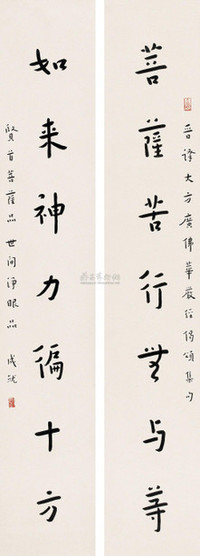 晋译大方广佛华严经偈颂集句
菩萨苦行无与等
如来神力徧十方
贤首菩萨品 世间净眼品 成就